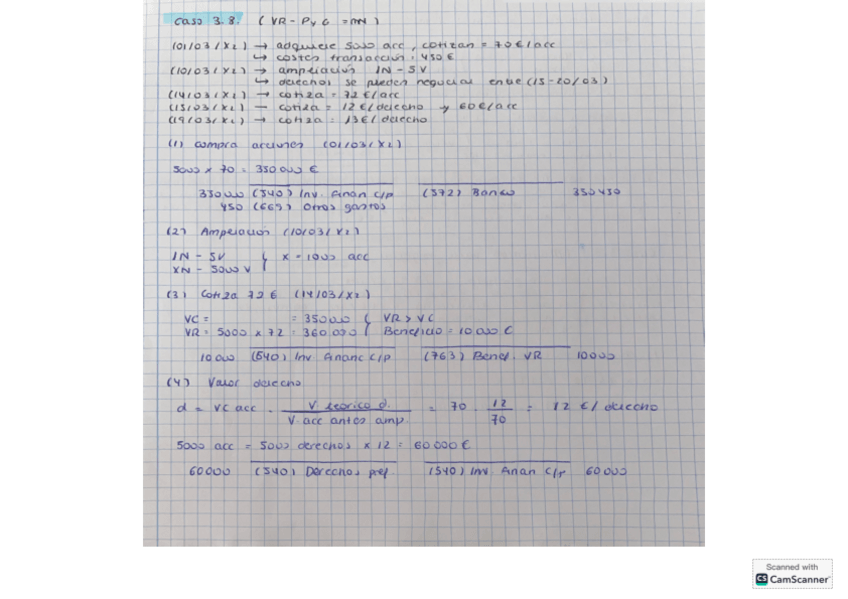 Caso 3.8. (VR-PyG = mN)
(01/03/X2) → adquiere 5000 acc, cotizan = 70€/acc
↳ costes transacción: 450 €
(10/03/X2) → ampliación 1N - 5V
↳ derechos se pueden negociar entre (15-20/03)
(14/03/X2) → cotiza = 72 €/acc
(15/03/X2) — cotiza = 12 €/derecho → 60€/acc
(19/03/X2) → cotiza = 13€/derecho
(1) Compra acciones (01/03/X2)
5000 x 70 = 350000 €
350000 (540) Inv. Finan c/p (572) Banco 350450
450 (669) Otros gastos
(2) Ampliación (10/03/X2)
1N - 5V
XN - 5000 V } x = 1000 acc
(3) Cotiza 72 € (14/03/X2)
VC = = 350000 { VR > VC
VR = 5000 x 72 = 360.000 { Beneficio = 10 000 €
10 000 (540) Inv Financ c/p (763) Benef. VR 10000
(4) Valor derecho
d = VC acc . V. teorico d. / V. acc antes amp. = 70 . 12 / 70 = 12 €/derecho
5000 acc = 5000 derechos x 12 = 60 000 €
60000 (540) Derechos pref. (540) Inv Finan c/p 60000
Scanned with
CS CamScanner